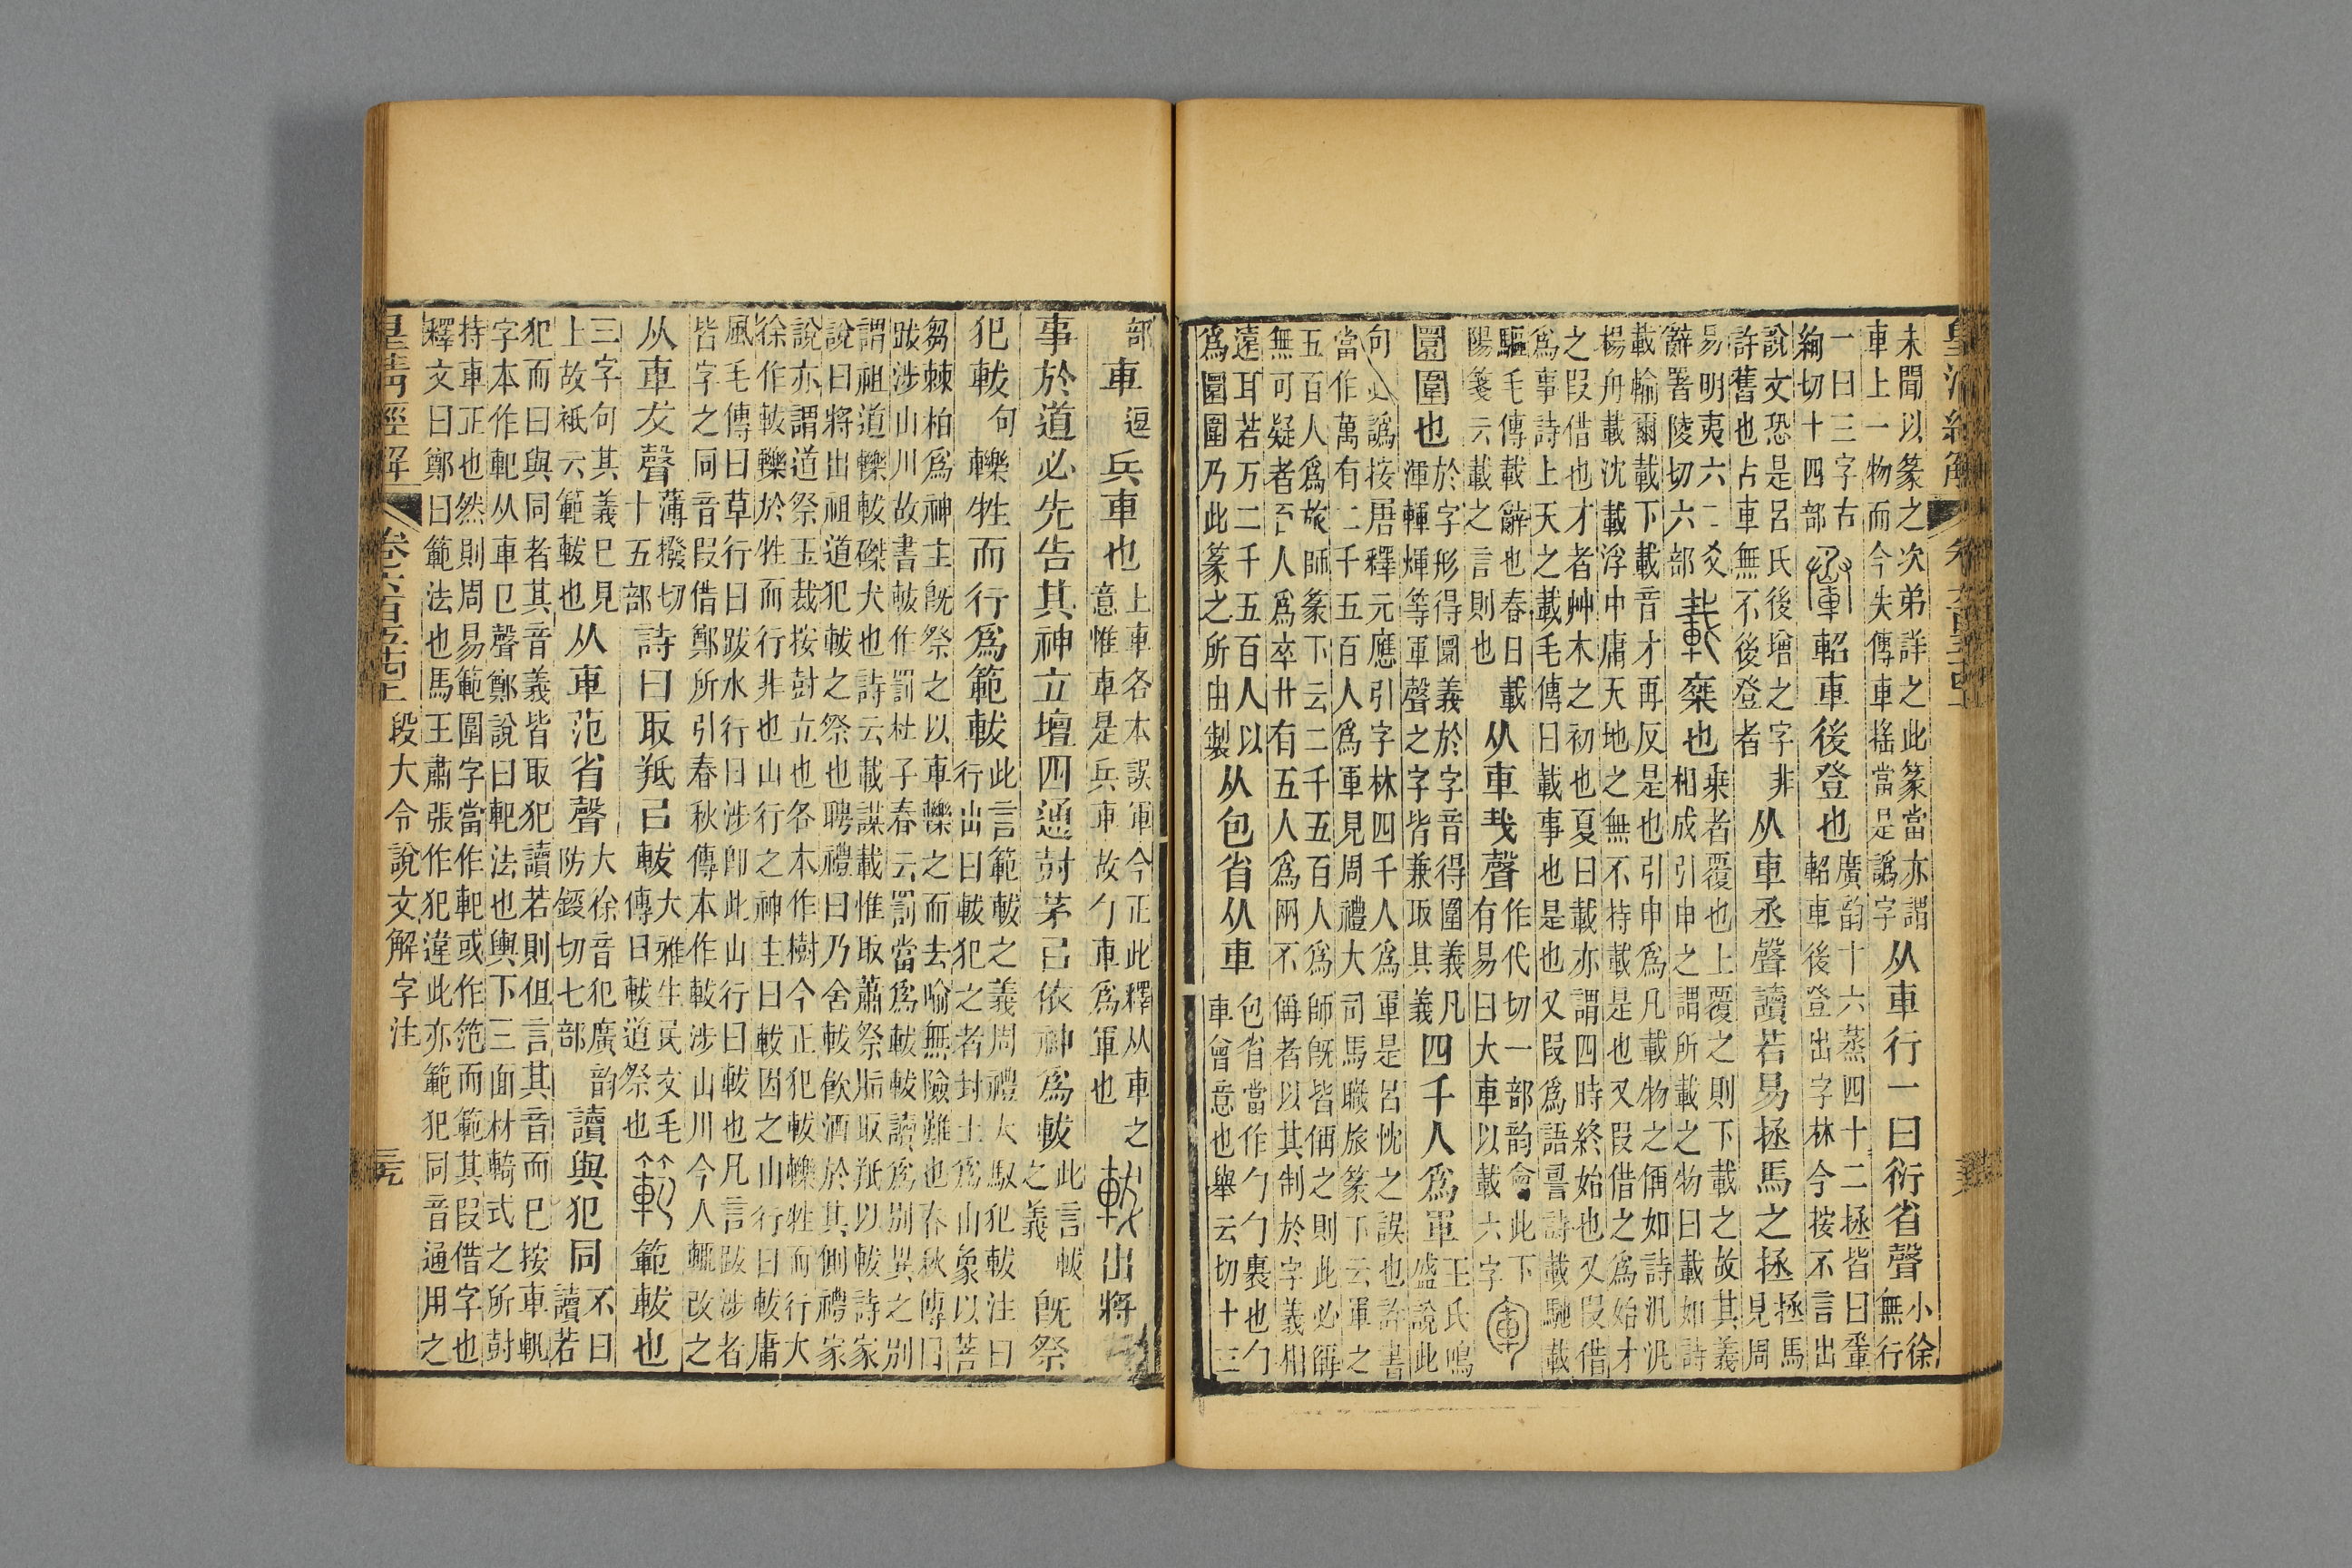 未聞以篆之次弟詳之此篆當亦謂
車上一物而今失傳車搖當是譌字
从車行一曰衍省聲
小徐
無行
一曰三字古
絢切十四部
軺車後登也
廣韵十六蒸四十二拯皆曰𨋬
軺車後登出字林今按不言出
說文恐是呂氏後增之字非
許舊也占車無不後登者
从車丞聲讀若易拯馬之拯
拯馬
見周
易明夷六二爻
辭署陵切六部
椉也
乗者覆也上覆之則下載之故其義
相成引申之謂所載之物曰載如詩
載輸爾載下載音才再反是也引申爲凡載物之偁如詩汎汎
楊舟載沈載浮中庸天地之無不持載是也又叚借之爲始才
之叚借也才者艸木之初也夏曰載亦謂四時終始也又叚借
爲事詩上天之載毛傳曰載事也是也又叚爲語詞詩載馳載
驅毛傳載辭也春日載
陽箋云載之言則也
从車𢦏聲
作代切一部韵會此下
有易曰大車以載六字
圜圍也
於字形得圜義於字音得圍義凡
渾輥煇等軍聲之字皆兼取其義
四千人爲軍
王氏鳴
盛說此
句必譌按唐釋元應引字林四千人爲軍是呂忱之誤也許書
當作萬有二千五百人爲軍見周禮大司馬職旅篆下云軍之
五百人爲旅師篆下云二千五百人爲師旣皆偁之則此必偁
無可疑者百人爲卒廿有五人爲网不偁者以其制於字義相
遠耳若万二千五百人以
爲圜圍乃此篆之所由製
从包省从車
包省當作勹勹裹也勹
車會意也舉云切十三
部
車
逗
兵車也
上車各本誤軍今正此釋从車之
意惟車是兵車故勹車爲軍也
出將
事於道必先告其神立壇四通尌茅㠯依神爲軷
此言軷
之義
旣祭
犯軷
句
轢牲而行爲範軷
此言範軷之義周禮大馭犯軷注曰
行山曰軷犯之者封土爲山象以菩
芻棘柏爲神主旣祭之以車轢之而去喻無險難也春秋傳曰
跋涉山川故書軷作罰杜子春云罰當爲軷軷讀爲別異之別
謂祖道轢軷磔犬也詩云載謀載惟取蕭祭脂取羝以軷詩家
說曰將出祖道犯軷之祭也聘禮曰乃舍軷飮酒於其側禮家
說亦謂道祭玉裁按尌立也各本作樹今正犯軷轢牲而行大
徐作軷轢於牲而行非也山行之神主曰軷因之山行曰軷庸
風毛傳曰草行曰跋水行曰涉卽此山行曰軷也凡言跋涉者
皆字之同音叚借鄭所引春秋傳本作軷涉山川今人輒改之
从車犮聲
薄撥切
十五部
詩曰取羝㠯軷
大雅生民文毛
傳曰軷道祭也
範軷也
三字句其義巳見
上故衹云範軷也
从車笵省聲
大徐音犯廣韵
防錽切七部
讀與犯同
不曰
讀若
犯而曰與同者其音義皆取犯讀若則但言其音而巳按車軓
字本作軓从車巳聲鄭說曰軓法也輿下三面材輢式之所尌
持車正也然則周易範圍字當作軓或作笵而範其叚借字也
釋文曰鄭曰範法也馬王肅張作犯違此亦範犯同音通用之
皇清經解 卷六百五十四上 段大令說文解字注